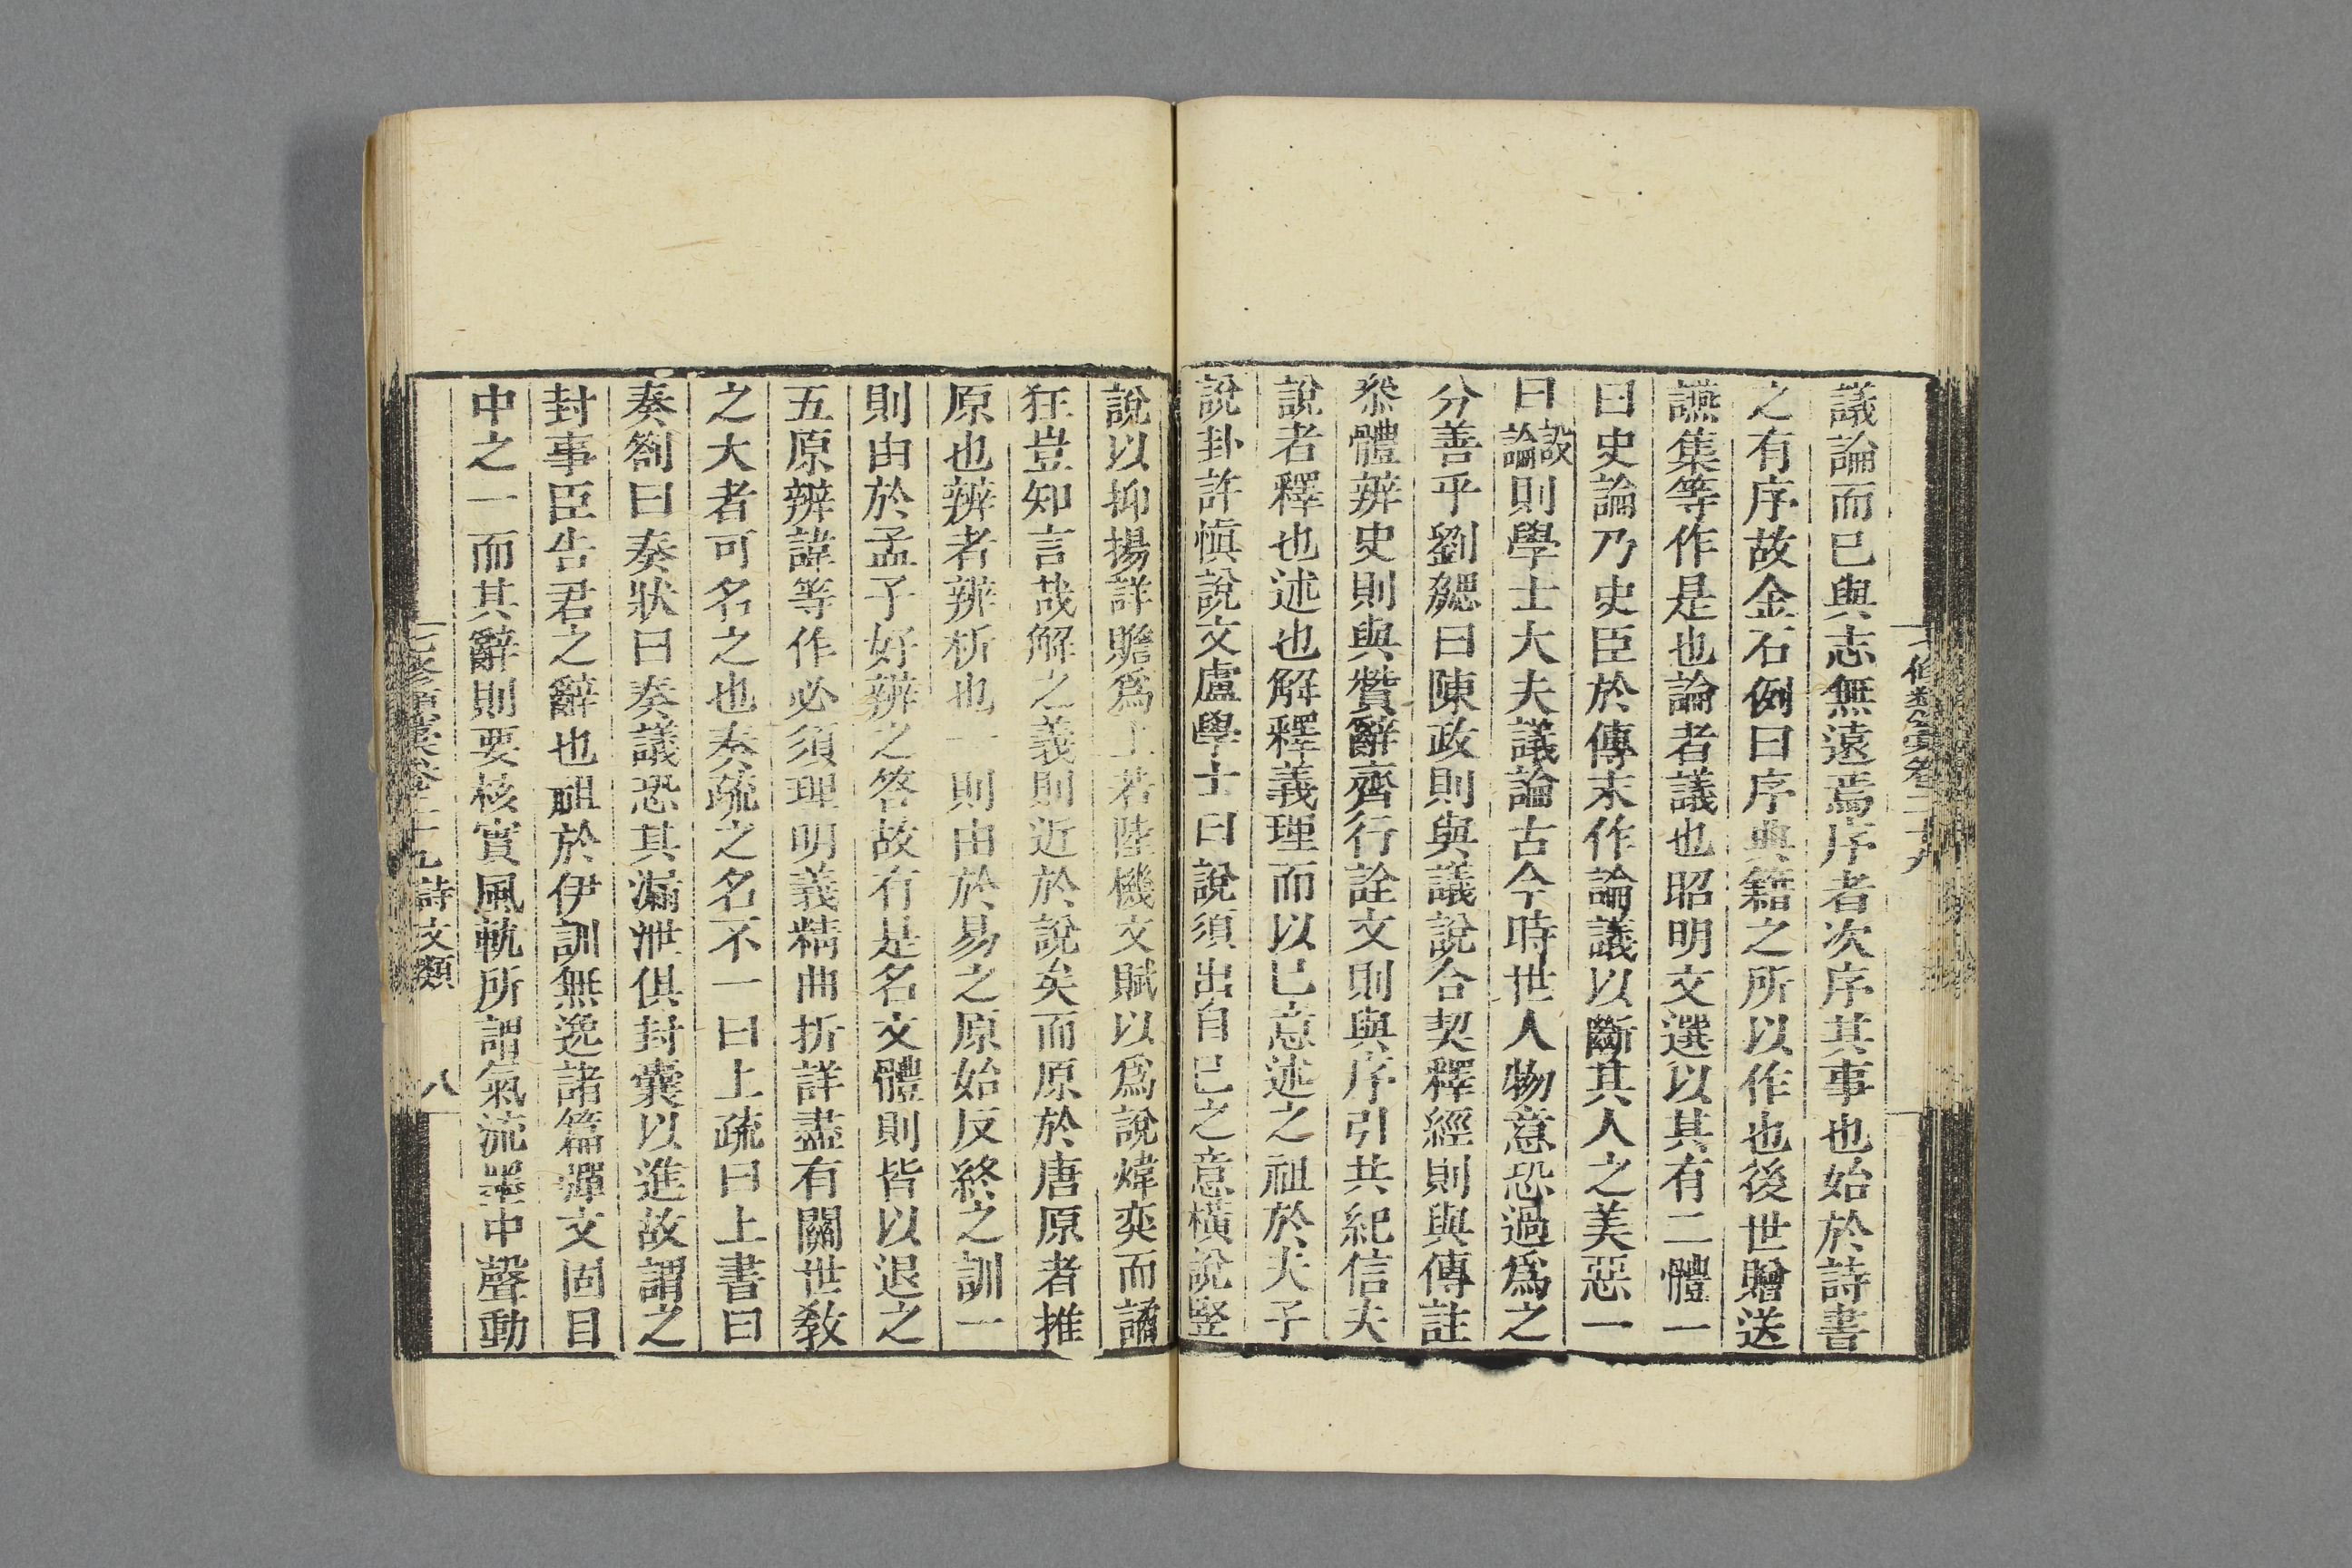 議論而已與志無遠焉序者次序其事也始於詩書
之有序故金石例曰序典籍之所以作也後世贈送
讌集等作是也論者議也昭明文選以其有二體一
曰史論乃史臣於傳末作論議以斷其人之美惡一
曰設論則學士大夫議論古今時世人物意恐過爲之
分善乎劉勰曰陳政則與議說合契釋經則與傳註
叅體辨史則與贊辭齊行詮文則與序引共紀信夫
說者釋也述也解釋義理而以已意述之祖於夫子
說卦許愼說文盧學士曰說須出自已之意橫說竪
說以抑揚詳贍爲上若陸機文賦以爲說煒奕而譎
狂豈知言哉解之義則近於說矣而原於唐原者推
原也辨者辨析也一則由於易之原始反終之訓一
則由於孟子好辨之答故有是名文體則皆以退之
五原辨諱等作必須理明義精曲折詳盡有關世敎
之大者可名之也奏疏之名不一曰上疏曰上書曰
奏劄曰奏狀曰奏議恐其漏泄俱封囊以進故謂之
封事臣告君之辭也祖於伊訓無逸諸篇彈文固目
中之一而其辭則要核實風軌所謂氣流墨中聲動
七修類藁卷二十九 詩文類 八